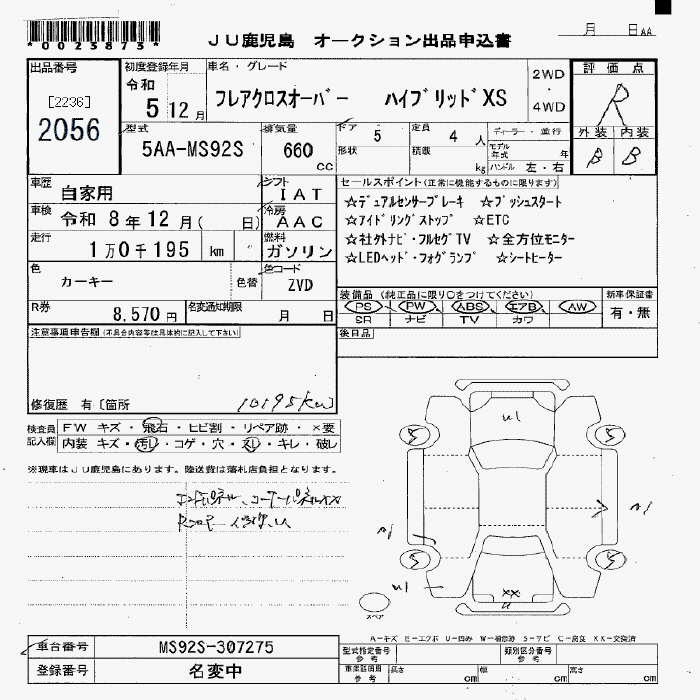 *0023873*
JU鹿児島 オークション出品申込書
月 日AA
出品番号
[2236]
2056
初度登録年月
令和
5 12月
車名・グレード
フレアクロスオーバー ハイブリッドXS
2WD
・
4WD
評価点
R
外装 内装
B B
型式
5AA-MS92S
排気量
660
cc
ドア 5
形状
定員 4 人
積載 kg
ディーラー・並行
モデル年式 年
ハンドル 左・右
車歴 自家用
シフト IAT
車検 令和 8年12月( 日)
冷房 AAC
走行 1万0千195 km
燃料 ガソリン
色 カーキー
色替
色コード ZVD
R券 8,570円
名変通知期限 月 日
セールスポイント(正常に機能するものに限ります)
☆デュアルセンサーブレーキ ☆プッシュスタート
☆アイドリングストップ ☆ETC
☆社外ナビ・フルセグTV ☆全方位モニター
☆LEDヘッド・フォグランプ ☆シートヒーター
装備品(純正品に限り○をつけてください)
PS PW ABS エアB AW
SR ナビ TV カワ
新車保証書
有・無
後日品
注意事項申告欄(不具合内容等は具体的に記入して下さい)
修復歴 有〔箇所
10195km〕
検査員記入欄
FW キズ・飛石・ヒビ割・リペア跡・×要
内装 キズ・汚レ・コゲ・穴・スレ・キレ・破レ
※現車はJU鹿児島にあります。陸送費は落札店負担となります。
エンドパネル、コーナーパネル
5 5
5 5
U1
A1
A1
U1
XX
U
スペア
A-キズ E-エクボ U-凹み W-補修跡 S-サビ C-腐食 XX-交換済
車台番号 MS92S-307275
登録番号 名変中
型式指定番号
参考
類別区分番号
参考
車庫証明用
参考
長さ cm
幅 cm
高さ cm